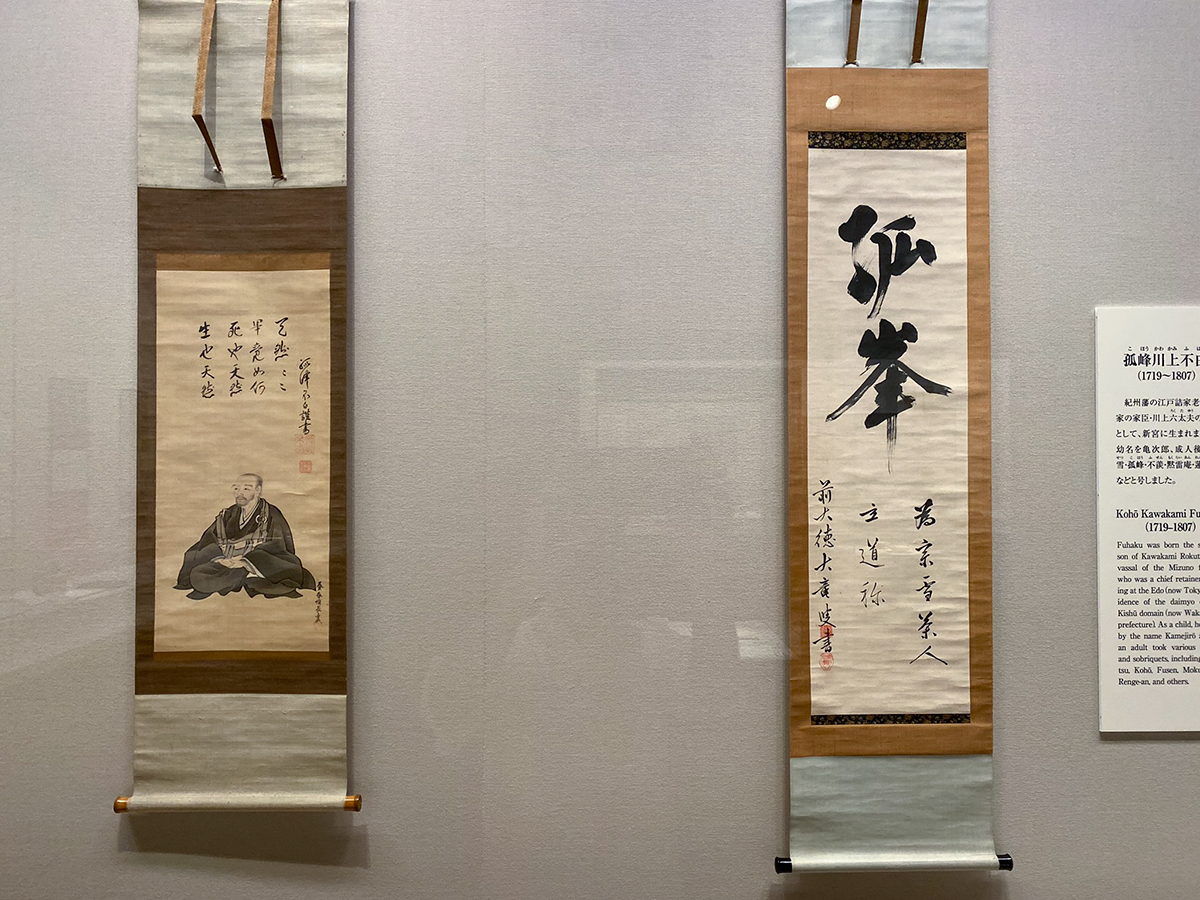 生也天然
死也天然
畢竟如何
天然〻〻
不白謹書
孤峯
為宗雪茶人
立道称
前大徳大叟書
こ ほう かわ かみ ふ
孤峰川上不白
(1719〜1807)
紀州藩の江戸詰家老
家の家臣・川上六太夫の
として、新宮に生まれま
幼名を亀次郎、成人後
雪・孤峰・不羨・黙雷庵・蓮
などと号しました。
Kohō Kawakami Fu
(1719–1807)
Fuhaku was born the s
son of Kawakami Rokut
vassal of the Mizuno f
who was a chief retainer
ing at the Edo (now Toky
idence of the daimyo
Kishū domain (now Waka
prefecture). As a child, he
by the name Kamejirō
an adult took various
and sobriquets, including
tsu, Kohō, Fusen, Moku
Renge-an, and others.